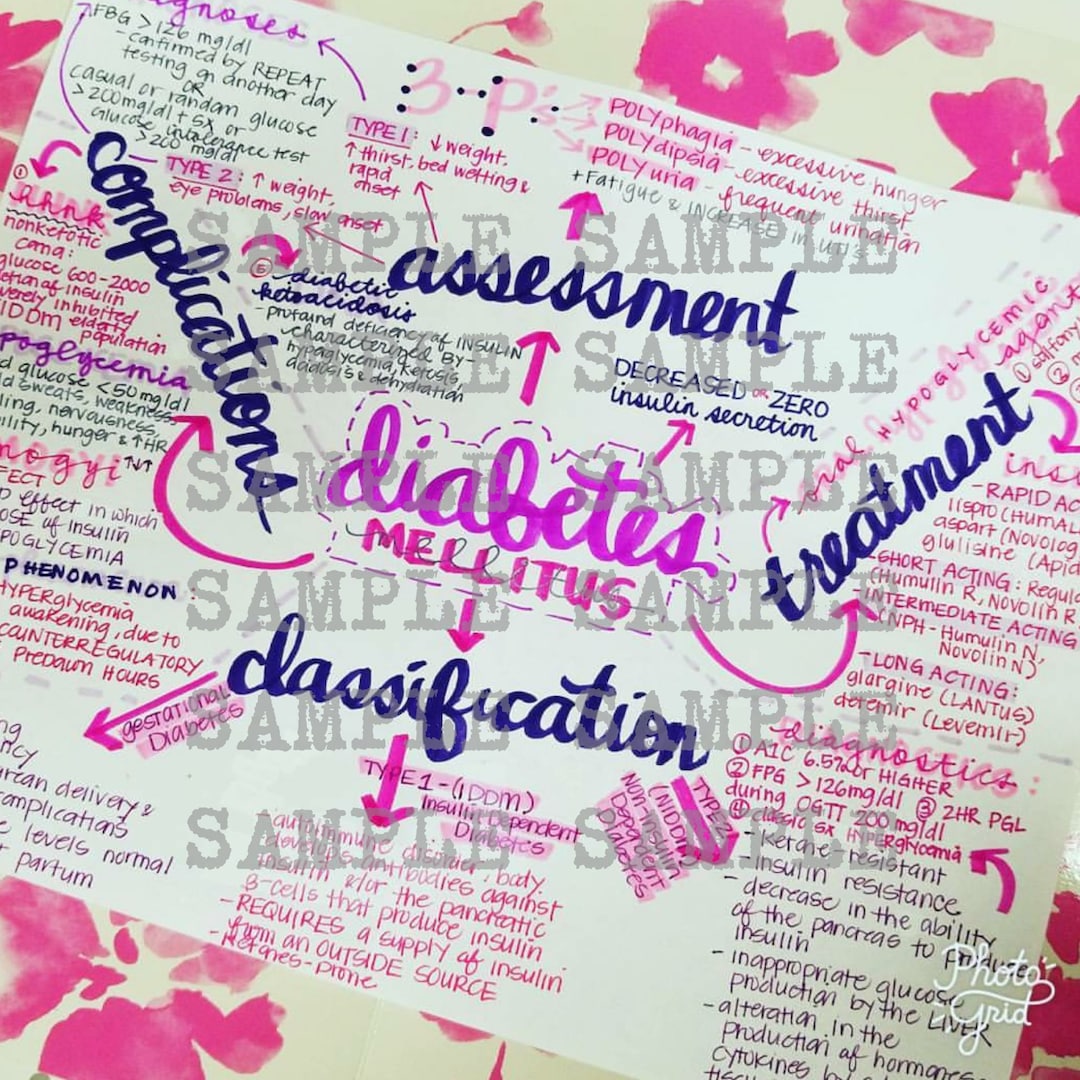 diagnoses
FBG > 126 mg/dl
- confirmed by REPEAT
testing on another day
OR
casual or random glucose
> 200mg/dl + SX or
Glucose intolerance test
> 200 mg/dl
3-P's
POLYphagia - excessive hunger
POLYdipsia - excessive thirst
POLYuria - frequent urination
+ Fatigue & INCREASE in UTI's
TYPE 1: ↓ weight,
↑ thirst, bed wetting &
rapid
onset
TYPE 2: ↑ weight,
eye problems, slow onset
assessment
complications
①
HHNK
nonketotic
coma:
glucose 600-2000
insulin
inhibited
IDDM elderly
population
⑤ diabetic
ketoacidosis
- profound deficiency of INSULIN
characterized By -
hypaglycemia, ketosis,
acidosis & dehydration
poglycemia
d glucose < 50 mg/dl
ld sweats, weakness,
ling, nervousness,
ility, hunger & ↑HR
mogyi
FECT
effect in which
OSE of insulin
POGLYCEMIA
PHENOMENON:
HYPERglycemia
awakening, due to
COUNTERREGULATORY
Predawn HOURS
DECREASED OR ZERO
insulin secretion
diabetes
MELLITUS
mellitus
treatment
oral HYPOglycemic
agent
①
②
insu
- RAPID AC
lispro (HUMAL
aspart (Novolog
glulisine (Apid
- SHORT ACTING: Regula
(Humulin R, Novolin R
- INTERMEDIATE ACTING
(NPH - Humulin N,
Novolin N)
- LONG ACTING:
glargine (LANTUS)
detemir (Levemir)
classification
gestational
Diabetes
ng
ncy
arean delivery &
complications
e levels normal
partum
TYPE 1 - (IDDM)
Insulin Dependent
Diabetes
- autoimmune disorder, body
develops antibodies against
insulin &/or the pancreatic
B-cells that produce insulin
- REQUIRES a supply of insulin
from an OUTSIDE SOURCE
- Ketones-prone
TYPE 2
(NIDDM)
Non Insulin
Dependent
Diabetes
diagnostics:
① A1C 6.5% or HIGHER
② FPG > 126mg/dl ③ 2HR PGL
during OGTT 200 mg/dl
④ classic SX HYPERglycemia
- Ketone resistant
- insulin resistance
- decrease in the ability
of the pancreas to produce
insulin
- inappropriate glucose
production by the LIVER
- alteration in the
production of hormones
cytokines
SAMPLE SAMPLE
SAMPLE SAMPLE
SAMPLE SAMPLE
SAMPLE SAMPLE
SAMPLE SAMPLE
SAMPLE SAMPLE
Photo
Grid